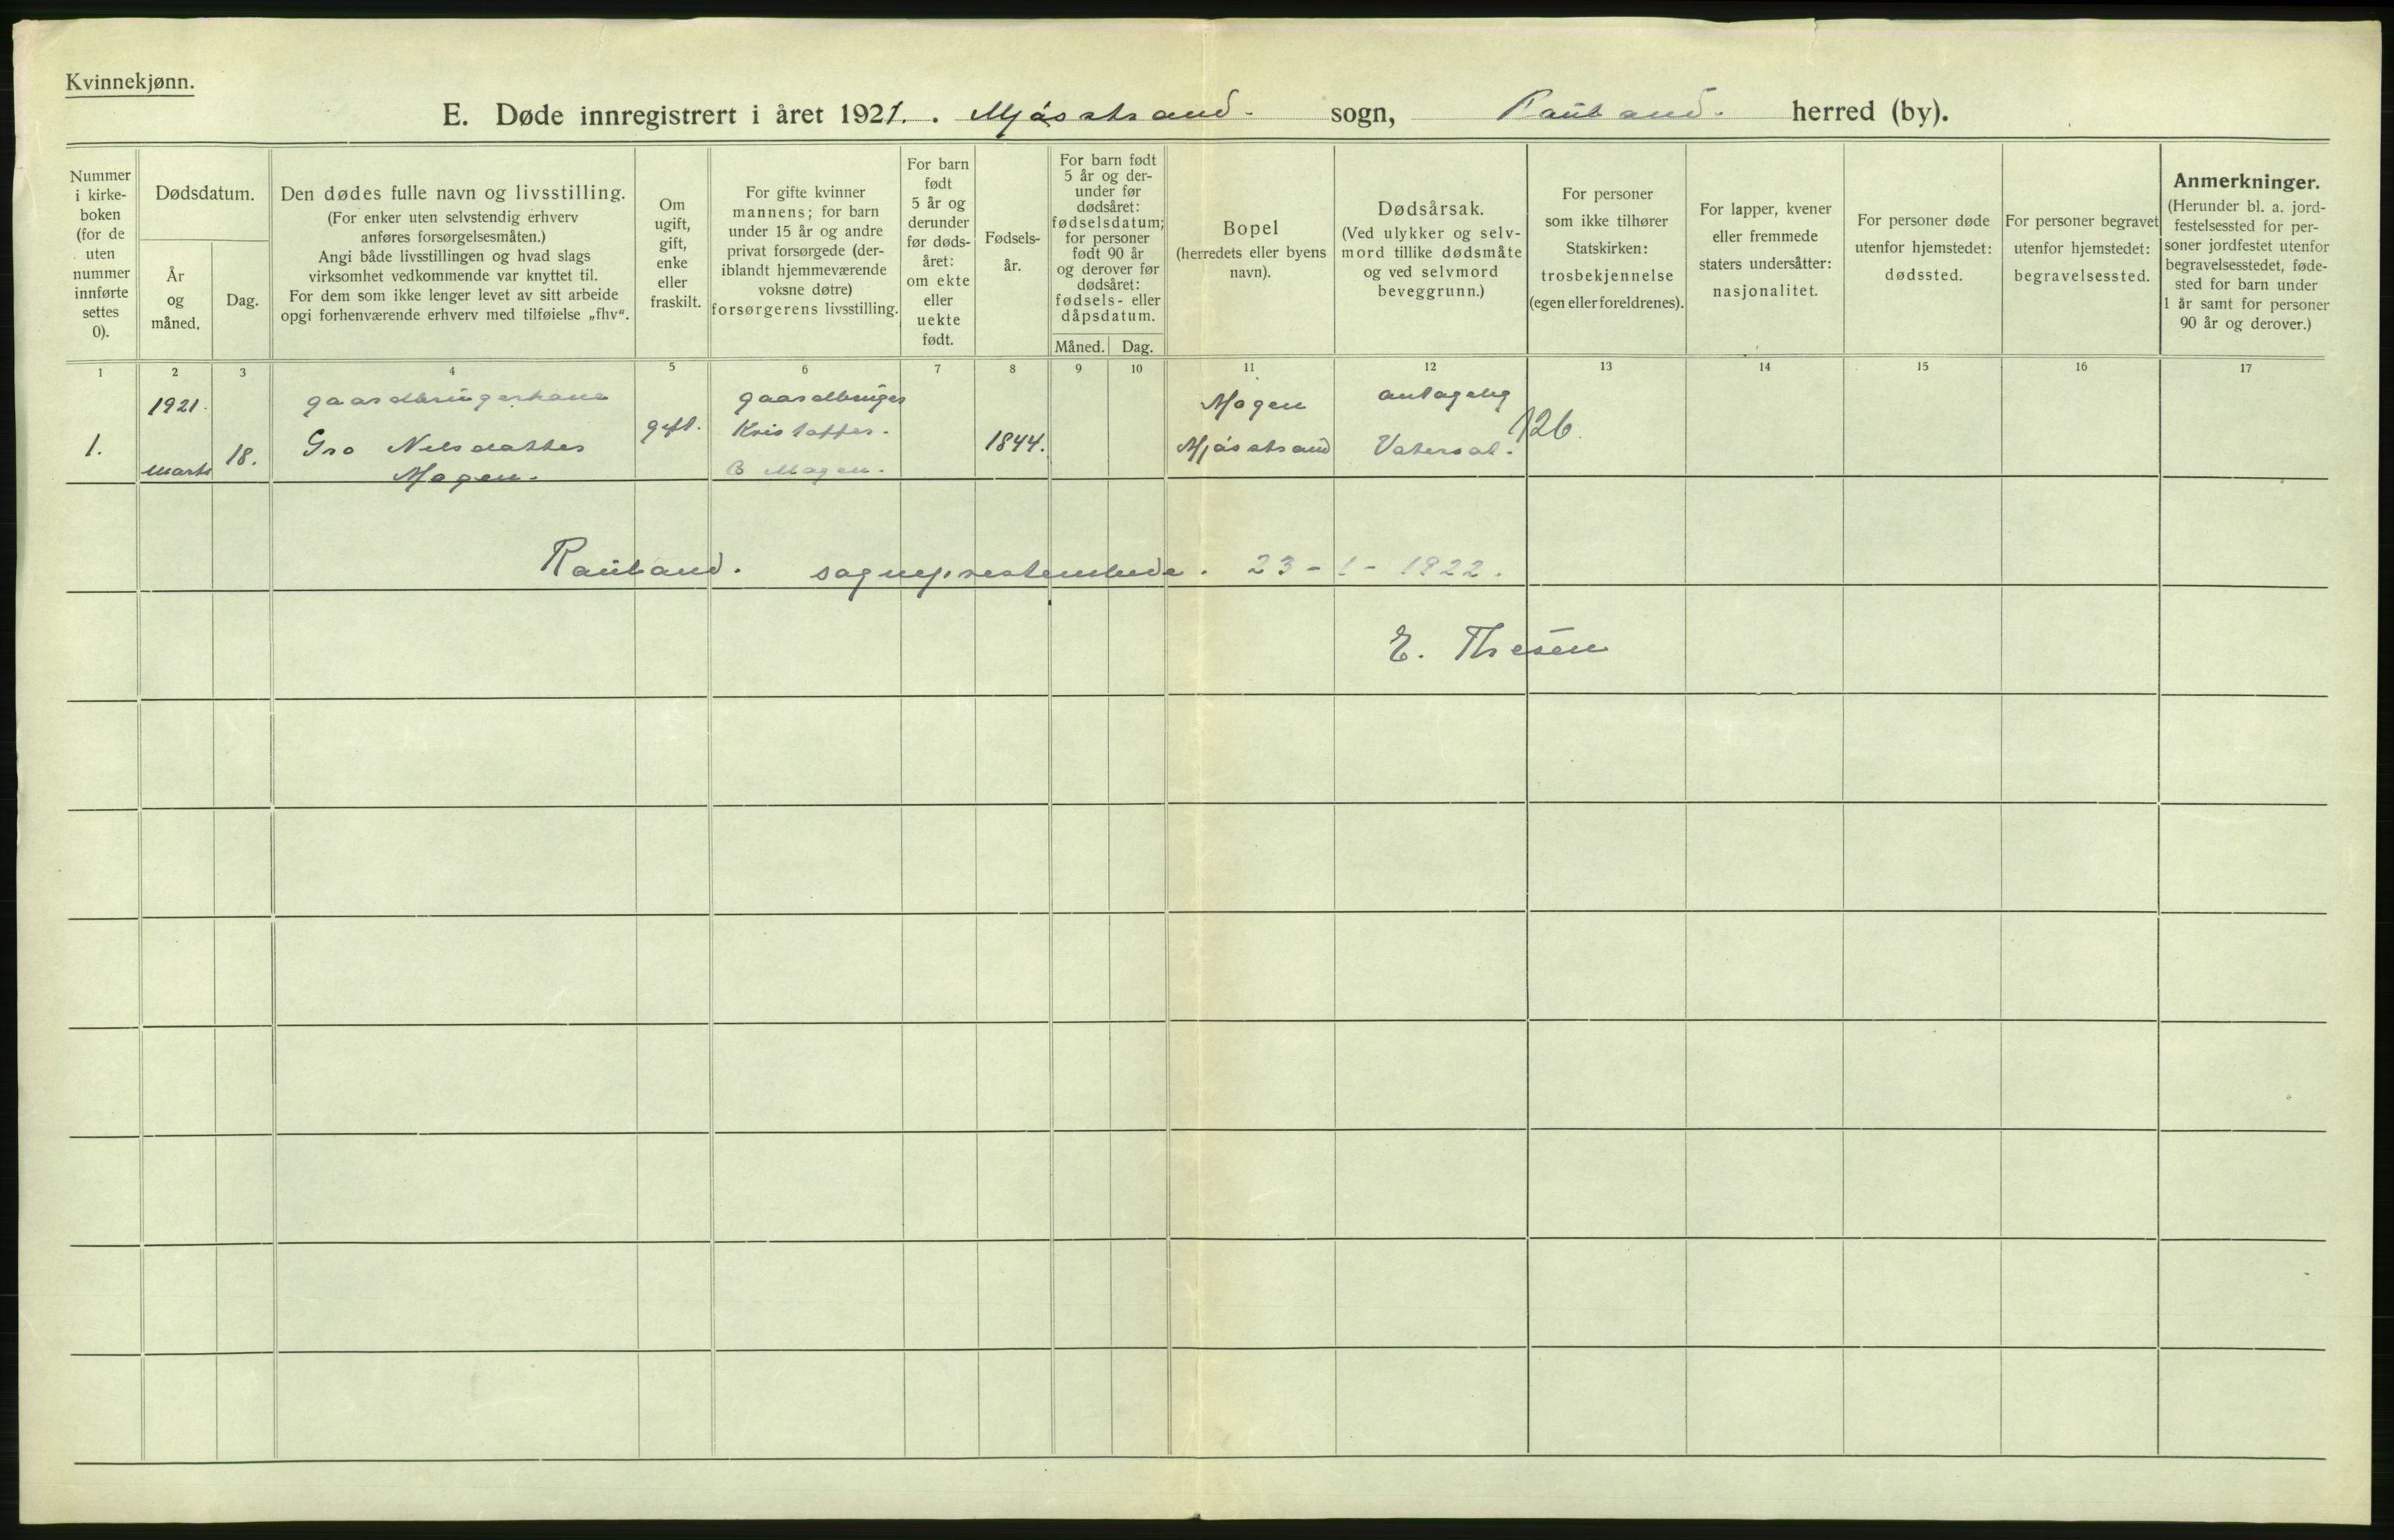 Kvinnekjønn.
E. Døde innregistrert i året 1921. Mjøsstrand. sogn, Rauland. herred (by).
Nummer
i kirke-
boken
(for de
uten
nummer
innførte
settes
0).
Dødsdatum.
År
og
måned.
Dag.
Den dødes fulle navn og livsstilling.
(For enker uten selvstendig erhverv
anføres forsørgelsesmåten.)
Angi både livsstillingen og hvad slags
virksomhet vedkommende var knyttet til.
For dem som ikke lenger levet av sitt arbeide
opgi forhenværende erhverv med tilføielse „fhv“.
Om
ugift,
gift,
enke
eller
fraskilt.
For gifte kvinner
mannens; for barn
under 15 år og andre
privat forsørgede (der-
iblandt hjemmeværende
voksne døtre)
forsørgerens livsstilling.
For barn
født
5 år og
derunder
før døds-
året:
om ekte
eller
uekte
født.
Fødsels-
år.
For barn født
5 år og der-
under før
dødsåret:
fødselsdatum;
for personer
født 90 år
og derover før
dødsåret:
fødsels- eller
dåpsdatum.
Måned. Dag.
Bopel
(herredets eller byens
navn).
Dødsårsak.
(Ved ulykker og selv-
mord tillike dødsmåte
og ved selvmord
beveggrunn.)
For personer
som ikke tilhører
Statskirken:
trosbekjennelse
(egen eller foreldrenes).
For lapper, kvener
eller fremmede
staters undersåtter:
nasjonalitet.
For personer døde
utenfor hjemstedet:
dødssted.
For personer begravet
utenfor hjemstedet:
begravelsessted.
Anmerkninger.
(Herunder bl. a. jord-
festelsessted for per-
soner jordfestet utenfor
begravelsesstedet, føde-
sted for barn under
1 år samt for personer
90 år og derover.)
1 2 3 4 5 6 7 8 9 10 11 12 13 14 15 16 17
1.
1921.
marts
18.
gaardbrugerkone
Gro Nilsdatter
Mogen.
gift.
gaardbruger
Kristoffer
B Mogen.
1844.
Mogen
Mjøsstrand
antagelig
Vatersot.
126.
Rauland. sogneprestembede. 23-1-1922.
E. Thesen